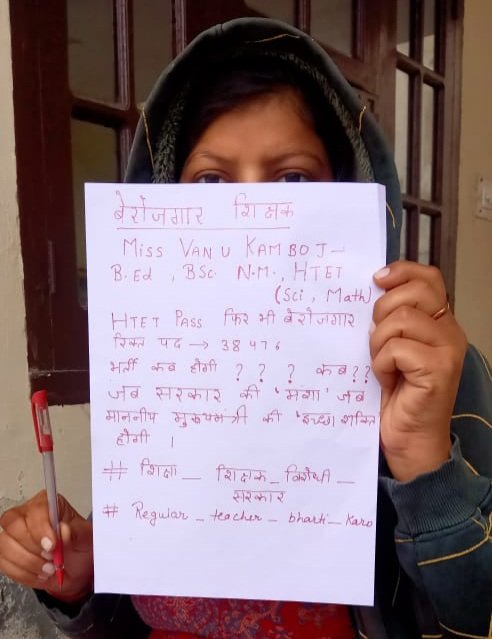 बेरोजगार शिक्षक
Miss VANU KAMBOJ -
B.Ed , BSc. N.M., HTET
(Sci , Math)
HTET PASS फिर भी बेरोजगार
रिक्त पद → 38476
भर्ती कब होगी ? ? ? कब??
जब सरकार की 'मंशा' जब
माननीय मुख्यमंत्री की 'इच्छा शक्ति
होगी ।
# शिक्षा _ शिक्षक _ विरोधी _
सरकार
# Regular _ teacher _ bharti _ Karo